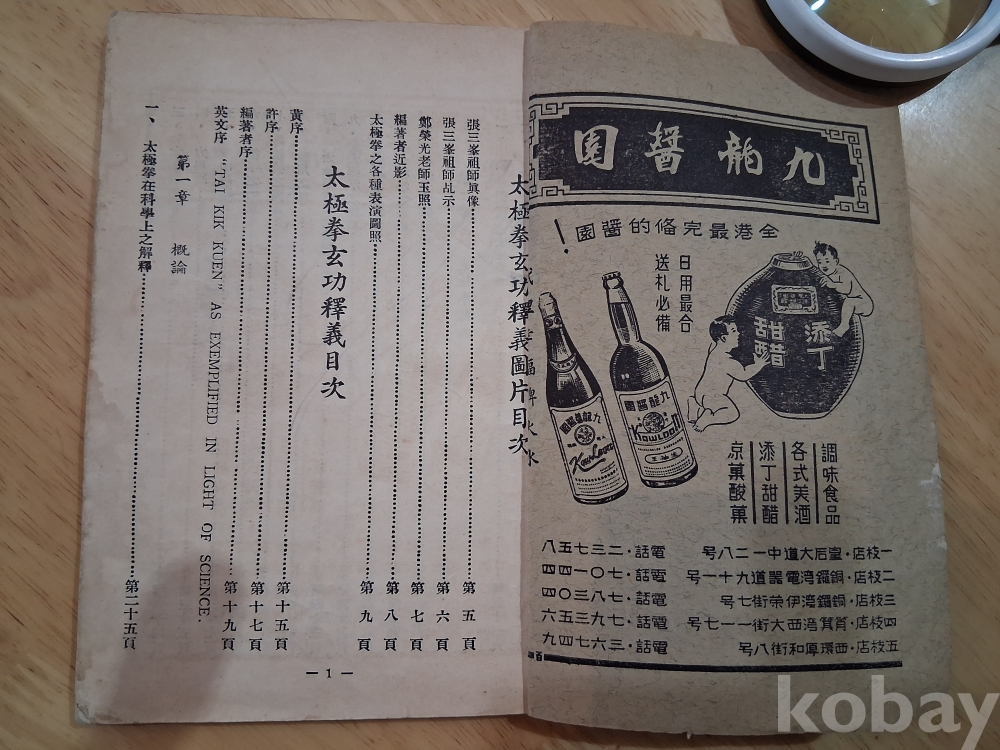 九龍醬園
全港最完俻的醬園！
日用最合
送礼必備
添丁
甜醋
九龍醬園
Kowloon
九龍醬園
Kowloon
調味食品
各式美酒
添丁甜醋
京菓酸菓
一枝店·皇后大道中一二八号 電話·二三七五八
二枝店·銅鑼湾電器道九十一号 電話·七〇一四四
三枝店·銅鑼湾伊荣街七号 電話·七八三〇四
四枝店·筲箕湾西大街一一七号 電話·七九三五六
五枝店·西環厚和街八号 電話·三六七四九
太極拳玄功釋義圖片目次
張三峯祖師眞像……第五頁
張三峯祖師乩示……第六頁
鄭榮光老師玉照……第七頁
編著者近影……第八頁
太極拳之各種表演圖照……第九頁
太極拳玄功釋義目次
黃序……第十五頁
許序……第十七頁
編著者序……第十九頁
英文序 "TAI KIK KUEN" AS EXEMPLIFIED IN LIGHT OF SCIENCE.
第一章 概論
一、太極拳在科學上之解釋……第二十五頁
— 1 —
kobay